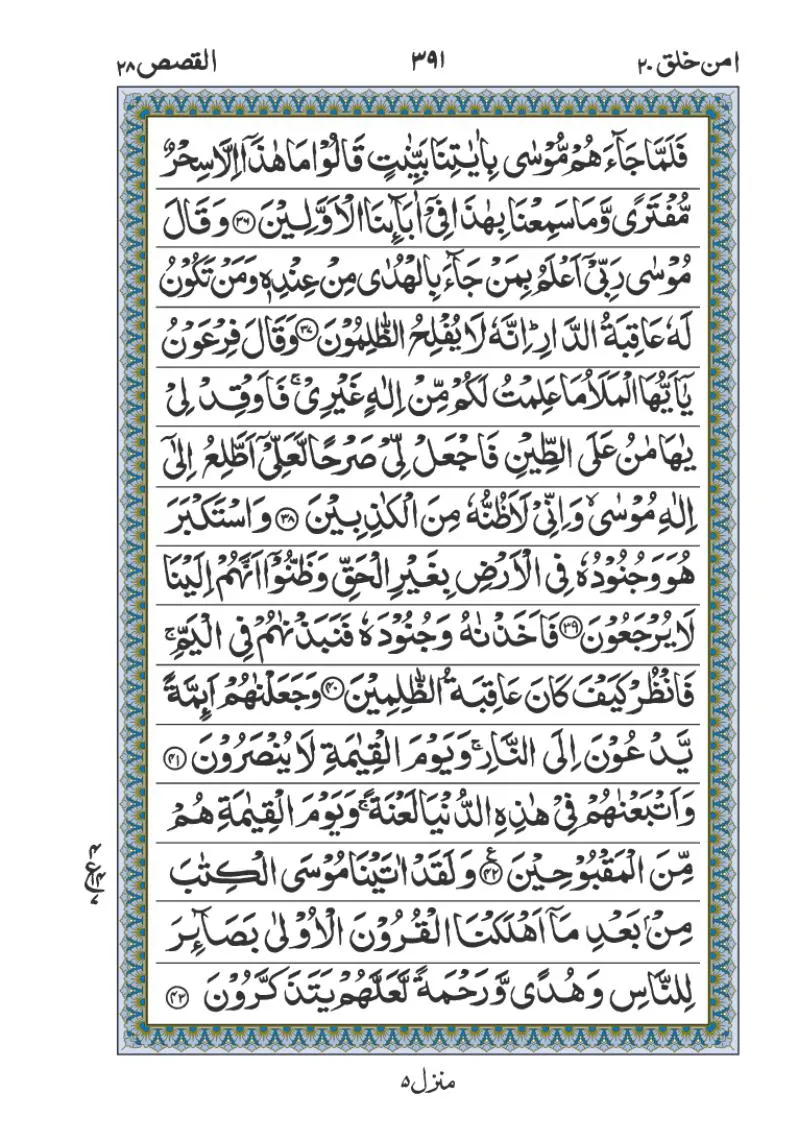 امن خلق ٢٠ ٣٩١ القصص ٢٨
فَلَمَّا جَآءَهُمْ مُّوْسٰى بِاٰيٰتِنَا بَيِّنٰتٍ قَالُوْا مَا هٰذَآ اِلَّا سِحْرٌ
مُّفْتَرًى وَّمَا سَمِعْنَا بِهٰذَا فِيْٓ اٰبَآئِنَا الْاَوَّلِيْنَ ﴿٣٦﴾ وَقَالَ
مُوْسٰى رَبِّيْٓ اَعْلَمُ بِمَنْ جَآءَ بِالْهُدٰى مِنْ عِنْدِهٖ وَمَنْ تَكُوْنُ
لَهٗ عَاقِبَةُ الدَّارِ ؕ اِنَّهٗ لَا يُفْلِحُ الظّٰلِمُوْنَ ﴿٣٧﴾ وَقَالَ فِرْعَوْنُ
يٰٓاَيُّهَا الْمَلَاُ مَا عَلِمْتُ لَكُمْ مِّنْ اِلٰهٍ غَيْرِيْ ۚ فَاَوْقِدْ لِيْ
يٰهَامٰنُ عَلَى الطِّيْنِ فَاجْعَلْ لِّيْ صَرْحًا لَّعَلِّيْٓ اَطَّلِعُ اِلٰٓى
اِلٰهِ مُوْسٰى ۙ وَاِنِّيْ لَاَظُنُّهٗ مِنَ الْكٰذِبِيْنَ ﴿٣٨﴾ وَاسْتَكْبَرَ
هُوَ وَجُنُوْدُهٗ فِى الْاَرْضِ بِغَيْرِ الْحَقِّ وَظَنُّوْٓا اَنَّهُمْ اِلَيْنَا
لَا يُرْجَعُوْنَ ﴿٣٩﴾ فَاَخَذْنٰهُ وَجُنُوْدَهٗ فَنَبَذْنٰهُمْ فِى الْيَمِّ ۚ
فَانْظُرْ كَيْفَ كَانَ عَاقِبَةُ الظّٰلِمِيْنَ ﴿٤٠﴾ وَجَعَلْنٰهُمْ اَئِمَّةً
يَّدْعُوْنَ اِلَى النَّارِ ۚ وَيَوْمَ الْقِيٰمَةِ لَا يُنْصَرُوْنَ ﴿٤١﴾
وَاَتْبَعْنٰهُمْ فِيْ هٰذِهِ الدُّنْيَا لَعْنَةً ۚ وَيَوْمَ الْقِيٰمَةِ هُمْ
مِّنَ الْمَقْبُوْحِيْنَ ﴿٤٢﴾ ع وَلَقَدْ اٰتَيْنَا مُوْسَى الْكِتٰبَ
مِنْۢ بَعْدِ مَآ اَهْلَكْنَا الْقُرُوْنَ الْاُوْلٰى بَصَآئِرَ
لِلنَّاسِ وَهُدًى وَّرَحْمَةً لَّعَلَّهُمْ يَتَذَكَّرُوْنَ ﴿٤٣﴾
منزل ٥